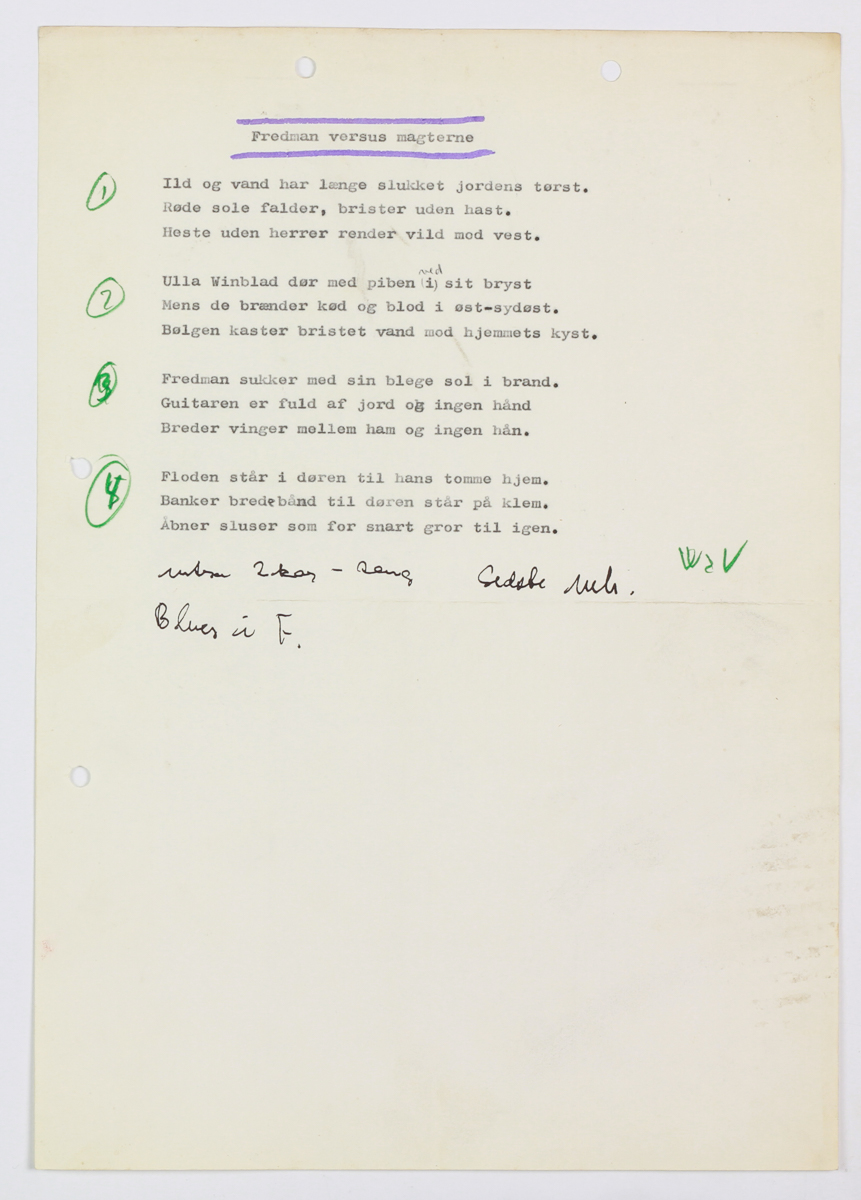 Fredman versus magterne
1
Ild og vand har længe slukket jordens tørst.
Røde sole falder, brister uden hast.
Heste uden herrer render vild mod vest.
ved
2
Ulla Winblad dør med piben (i) sit bryst
Mens de brænder kød og blod i øst-sydøst.
Bølgen kaster bristet vand mod hjemmets kyst.
3
Fredman sukker med sin blege sol i brand.
Guitaren er fuld af jord og ingen hånd
Breder vinger mellem ham og ingen hån.
4
Floden står i døren til hans tomme hjem.
Banker bredebånd til døren står på klem.
Åbner sluser som for snart gror til igen.
2 kor - sang
Blues i F.